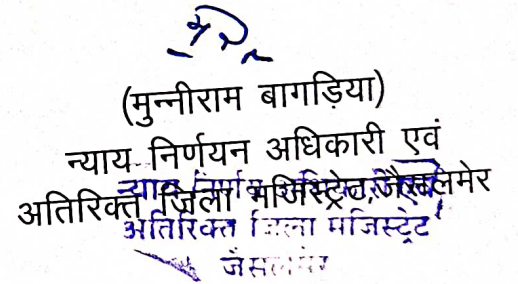 (मुन्नीराम बागड़िया)
न्याय निर्णयन अधिकारी एवं
अतिरिक्त जिला मजिस्ट्रेट,जैसलमेर
अतिरिक्त जिला मजिस्ट्रेट
जैसलमेर